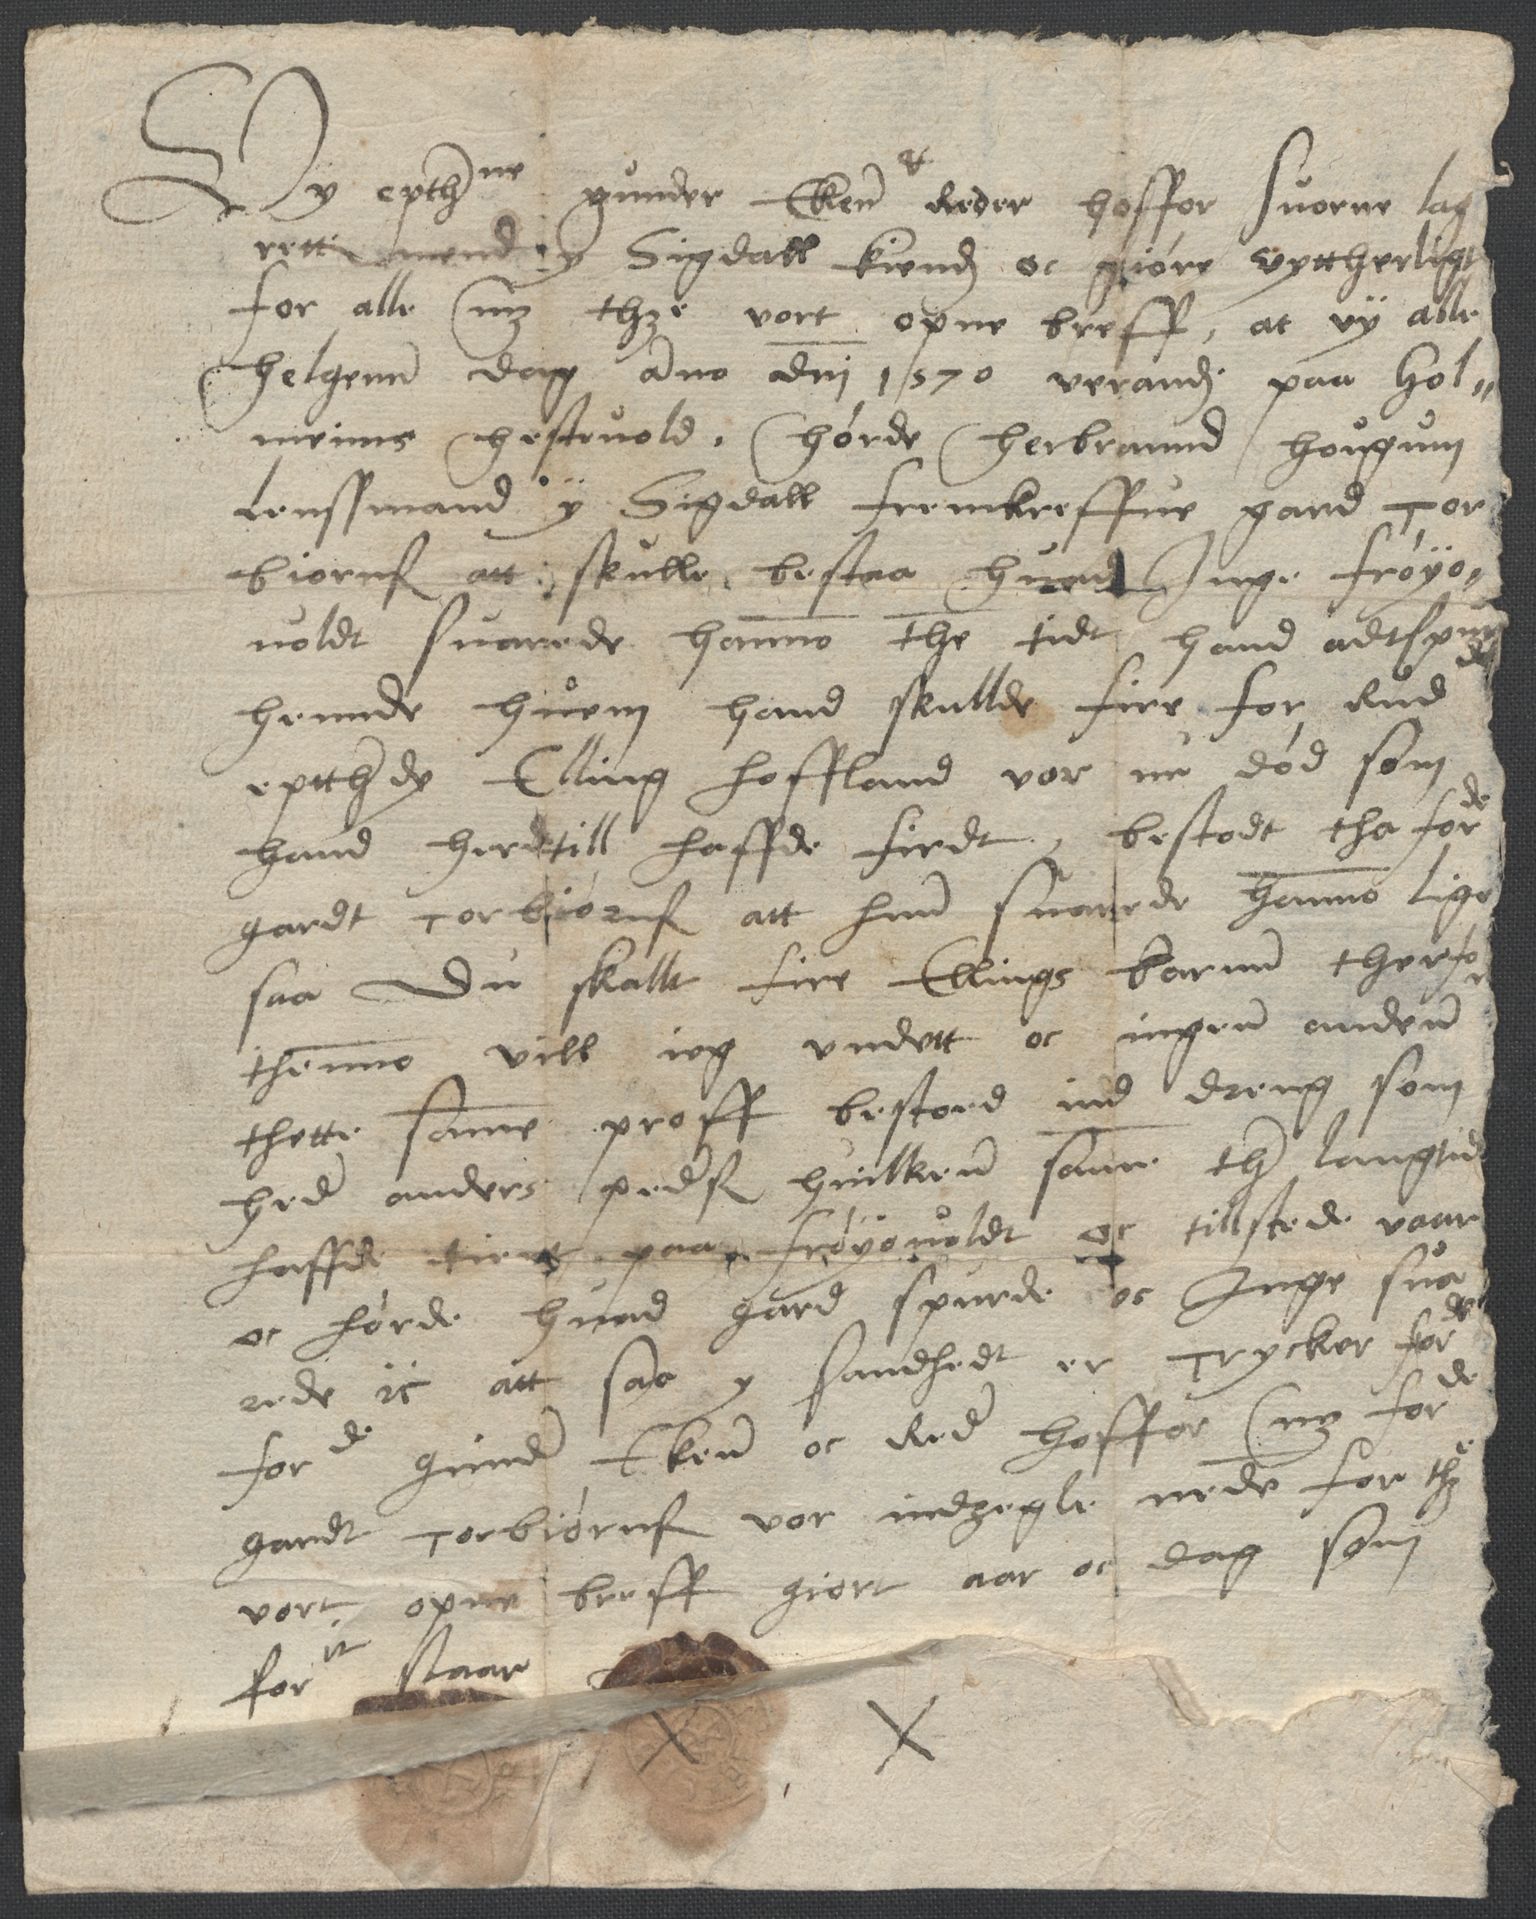 Vy epthne gunder Eken & Reder hoffor suorne lag
rette mend y Sigdall kiend oc giöre vyttherligt
for alle mz thze vort opne breff, at vÿ alle
helgenn dag Año dnj 1570 verandj paa Hol„
meims hesteuold, hörde herbrannd hougum
lenssmand ÿ Sigdall fremkreffue gard Tor
biornsß att skulle bestaa huad Inge fröyo„
uoldt suarede hanno the tidt hand adtspur
de
hennde huem hand skullde fire for Rud
eptthy Elling hoffland vor nu död som
hand herdtill haffde firdt, bestodt tha forde
gardt torbiörnsß att hun suarede hanno lige
saa Du skallt fire Ellings barnn therfor
thenno vill ieg undtt oc ingenn andenn
thette samme proff bestoed ind dreng som
hed anders pedsß huilkenn same th langtid
haffde tient paa fröyouoldt oc tillstede vaar
oc hörde huad gard spurde oc Inge sua
rede ic att saa y sandhedt er Trycker forde
forde gund Ekenn oc Red hoffor mz forde
gardt torbiörnsß vor indzegle neden for thze
vort opne breff giort aar oc dag som
forit staar
X X